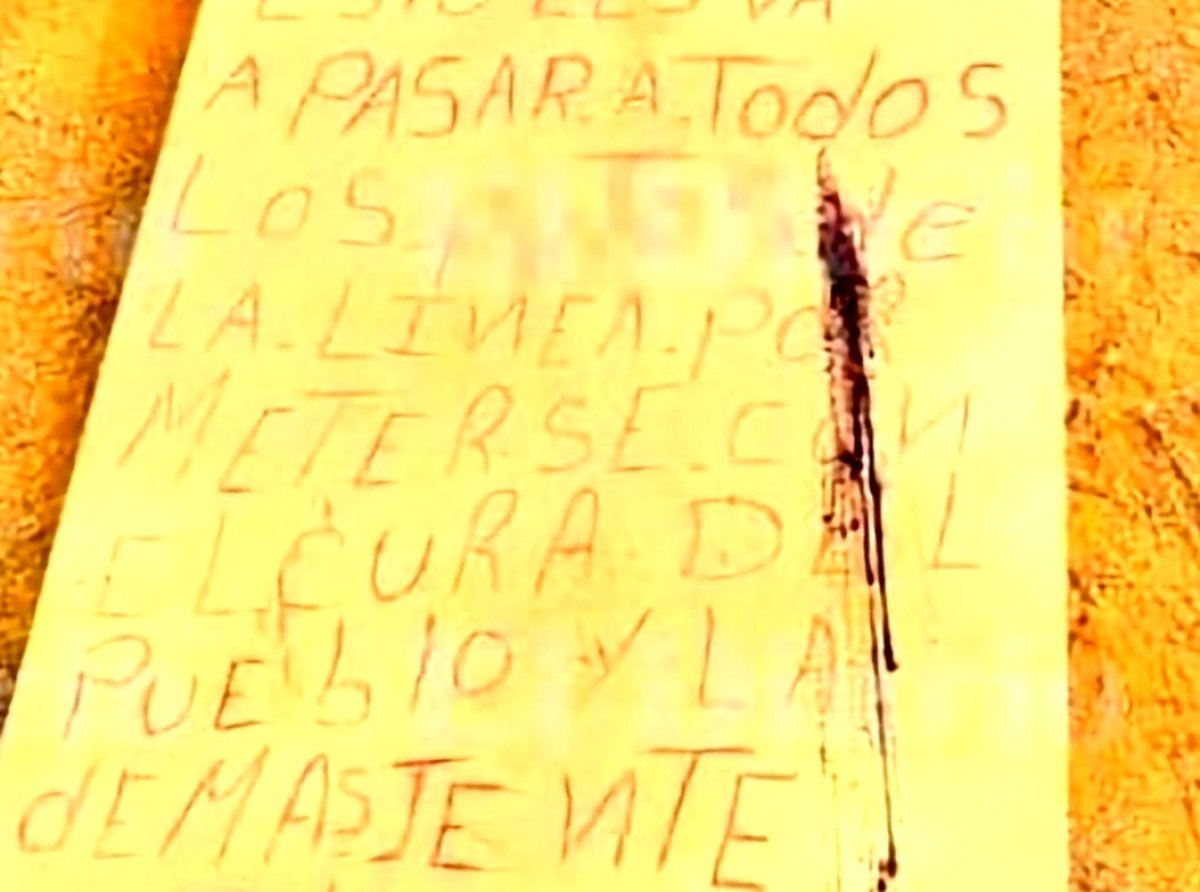 ESTO LES VA
A PASAR.A.TodoS
LoS de
LA.LINEA.POR
METERSE.CON
EL CURA DEL
PUEblO Y LA
dEMASJENTE